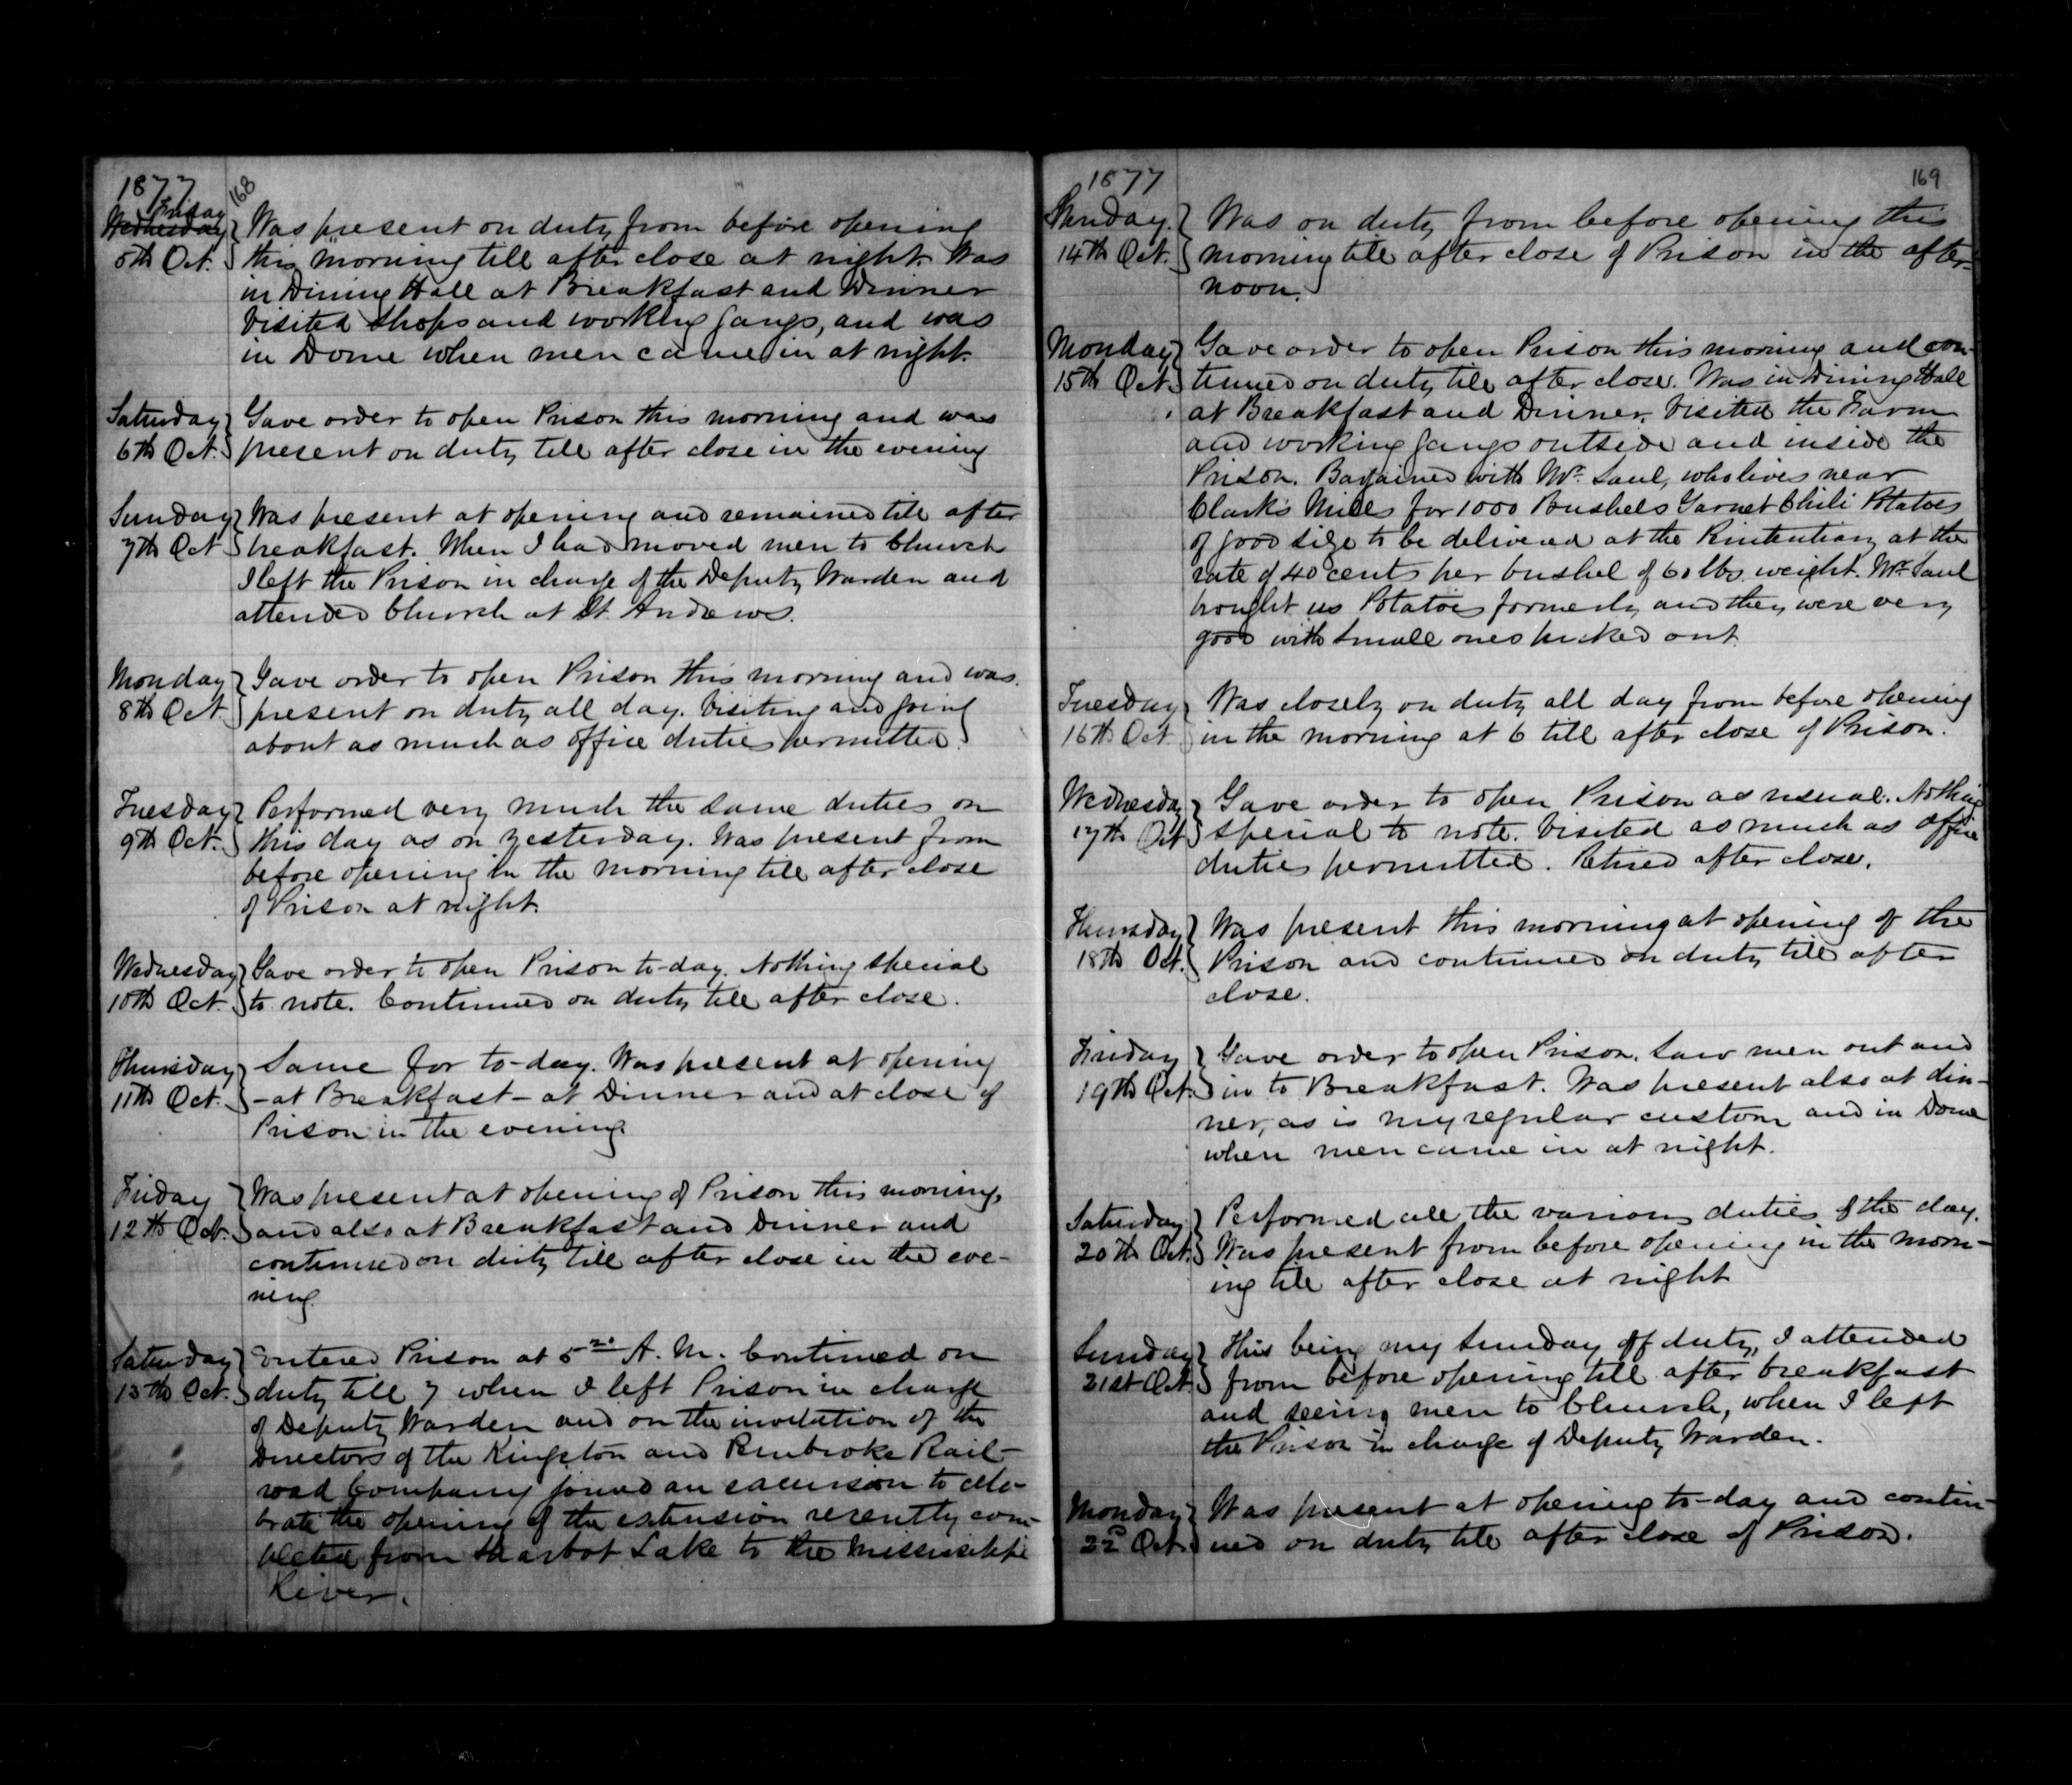 1877
168
Friday
Wednesday Was present on duty from before opening
5th Oct. this morning till after close at night. Was
in Dining Hall at Breakfast and Dinner
Visited Shops and working gangs, and was
in Dome when men came in at night.
Saturday Gave order to open Prison this morning and was
6th Oct. present on duty till after close in the evening
Sunday Was present at opening and remained till after
7th Oct breakfast. When I had moved men to Church
I left the Prison in charge of the Deputy Warden and
attended Church at St. Andrews.
Monday Gave order to open Prison this morning and was
8th Oct. present on duty all day. Visiting and going
about as much as office duties permitted.
Tuesday Performed very much the same duties on
9th Oct. this day as on yesterday. Was present from
before opening in the morning till after close
of Prison at night.
Wednesday Gave order to open Prison to-day. Nothing special
10th Oct. to note. Continued on duty till after close.
Thursday Same for to-day. Was present at opening
11th Oct. - at Breakfast - at Dinner and at close of
Prison in the evening.
Friday Was present at opening of Prison this morning,
12th Oct. and also at Breakfast and Dinner and
continued on duty till after close in the eve-
ning.
Saturday Entered Prison at 5 A. M. Continued on
13th Oct. duty till 7 when I left Prison in charge
of Deputy Warden and on the invitation of the
Directors of the Kingston and Pembroke Rail-
road Company joined an excursion to cele-
brate the opening of the extension recently com-
pleted from Sharbot Lake to the Mississippi
River.
1877
169
Sunday Was on duty from before opening this
14th Oct. morning till after close of Prison in the after-
noon.
Monday Gave order to open Prison this morning and con-
15th Oct. tinued on duty till after close. Was in Dining Hall
at Breakfast and Dinner. Visited the Farm
and working gangs outside and inside the
Prison. Bargained with Mr. Saul, who lives near
Clark's Mills for 1000 Bushels Garnet Chili Potatoes
of good size to be delivered at the Penitentiary at the
rate of 40 cents per bushel of 60 lbs weight. Mr. Saul
brought us Potatoes formerly and they were very
good with small ones picked out.
Tuesday Was closely on duty all day from before opening
16th Oct in the morning at 6 till after close of Prison.
Wednesday Gave order to open Prison as usual. Nothing
17th Oct special to note. Visited as much as office
duties permitted. Retired after close.
Thursday Was present this morning at opening of the
18th Oct. Prison and continued on duty till after
close.
Friday Gave order to open Prison. Saw men out and
19th Oct. in to Breakfast. Was present also at din-
ner, as is my regular custom and in Dome
when men came in at night.
Saturday Performed all the various duties of the day.
20th Oct. Was present from before opening in the morn-
ing till after close at night
Sunday This being my Sunday off duty, I attended
21st Oct. from before opening till after breakfast
and seeing men to Church, when I left
the Prison in charge of Deputy Warden.
Monday Was present at opening to-day and contin-
22d Oct. ued on duty till after close of Prison.